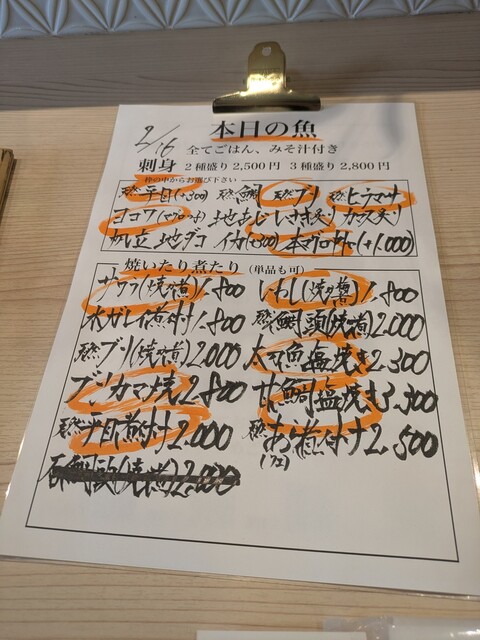 2/16
本日の魚
全てごはん、みそ汁付き
刺身 2種盛り2,500円 3種盛り2,800円
枠の中からお選び下さい
天然平目(+300) 天然鯛 天然ブリ 天然ヒラマサ
ヨコワ(マグロ) 地あじ いさき炙り カツオ炙り
帆立 地ダコ イカ(+300) 本マグロ(+1,000)
焼いたり煮たり (単品も可)
サワラ(焼or煮)1.800 いわし(焼or煮)1.800
水ガレイ煮付1.800 天然鯛頭(焼or煮)2.000
天然ブリ(焼or煮)2.000 太刀魚塩焼き2.300
ブリカマ焼2.800 甘鯛塩焼き3,300
天然平目煮付け2.000 天然あら煮付け2,500
(クエ)